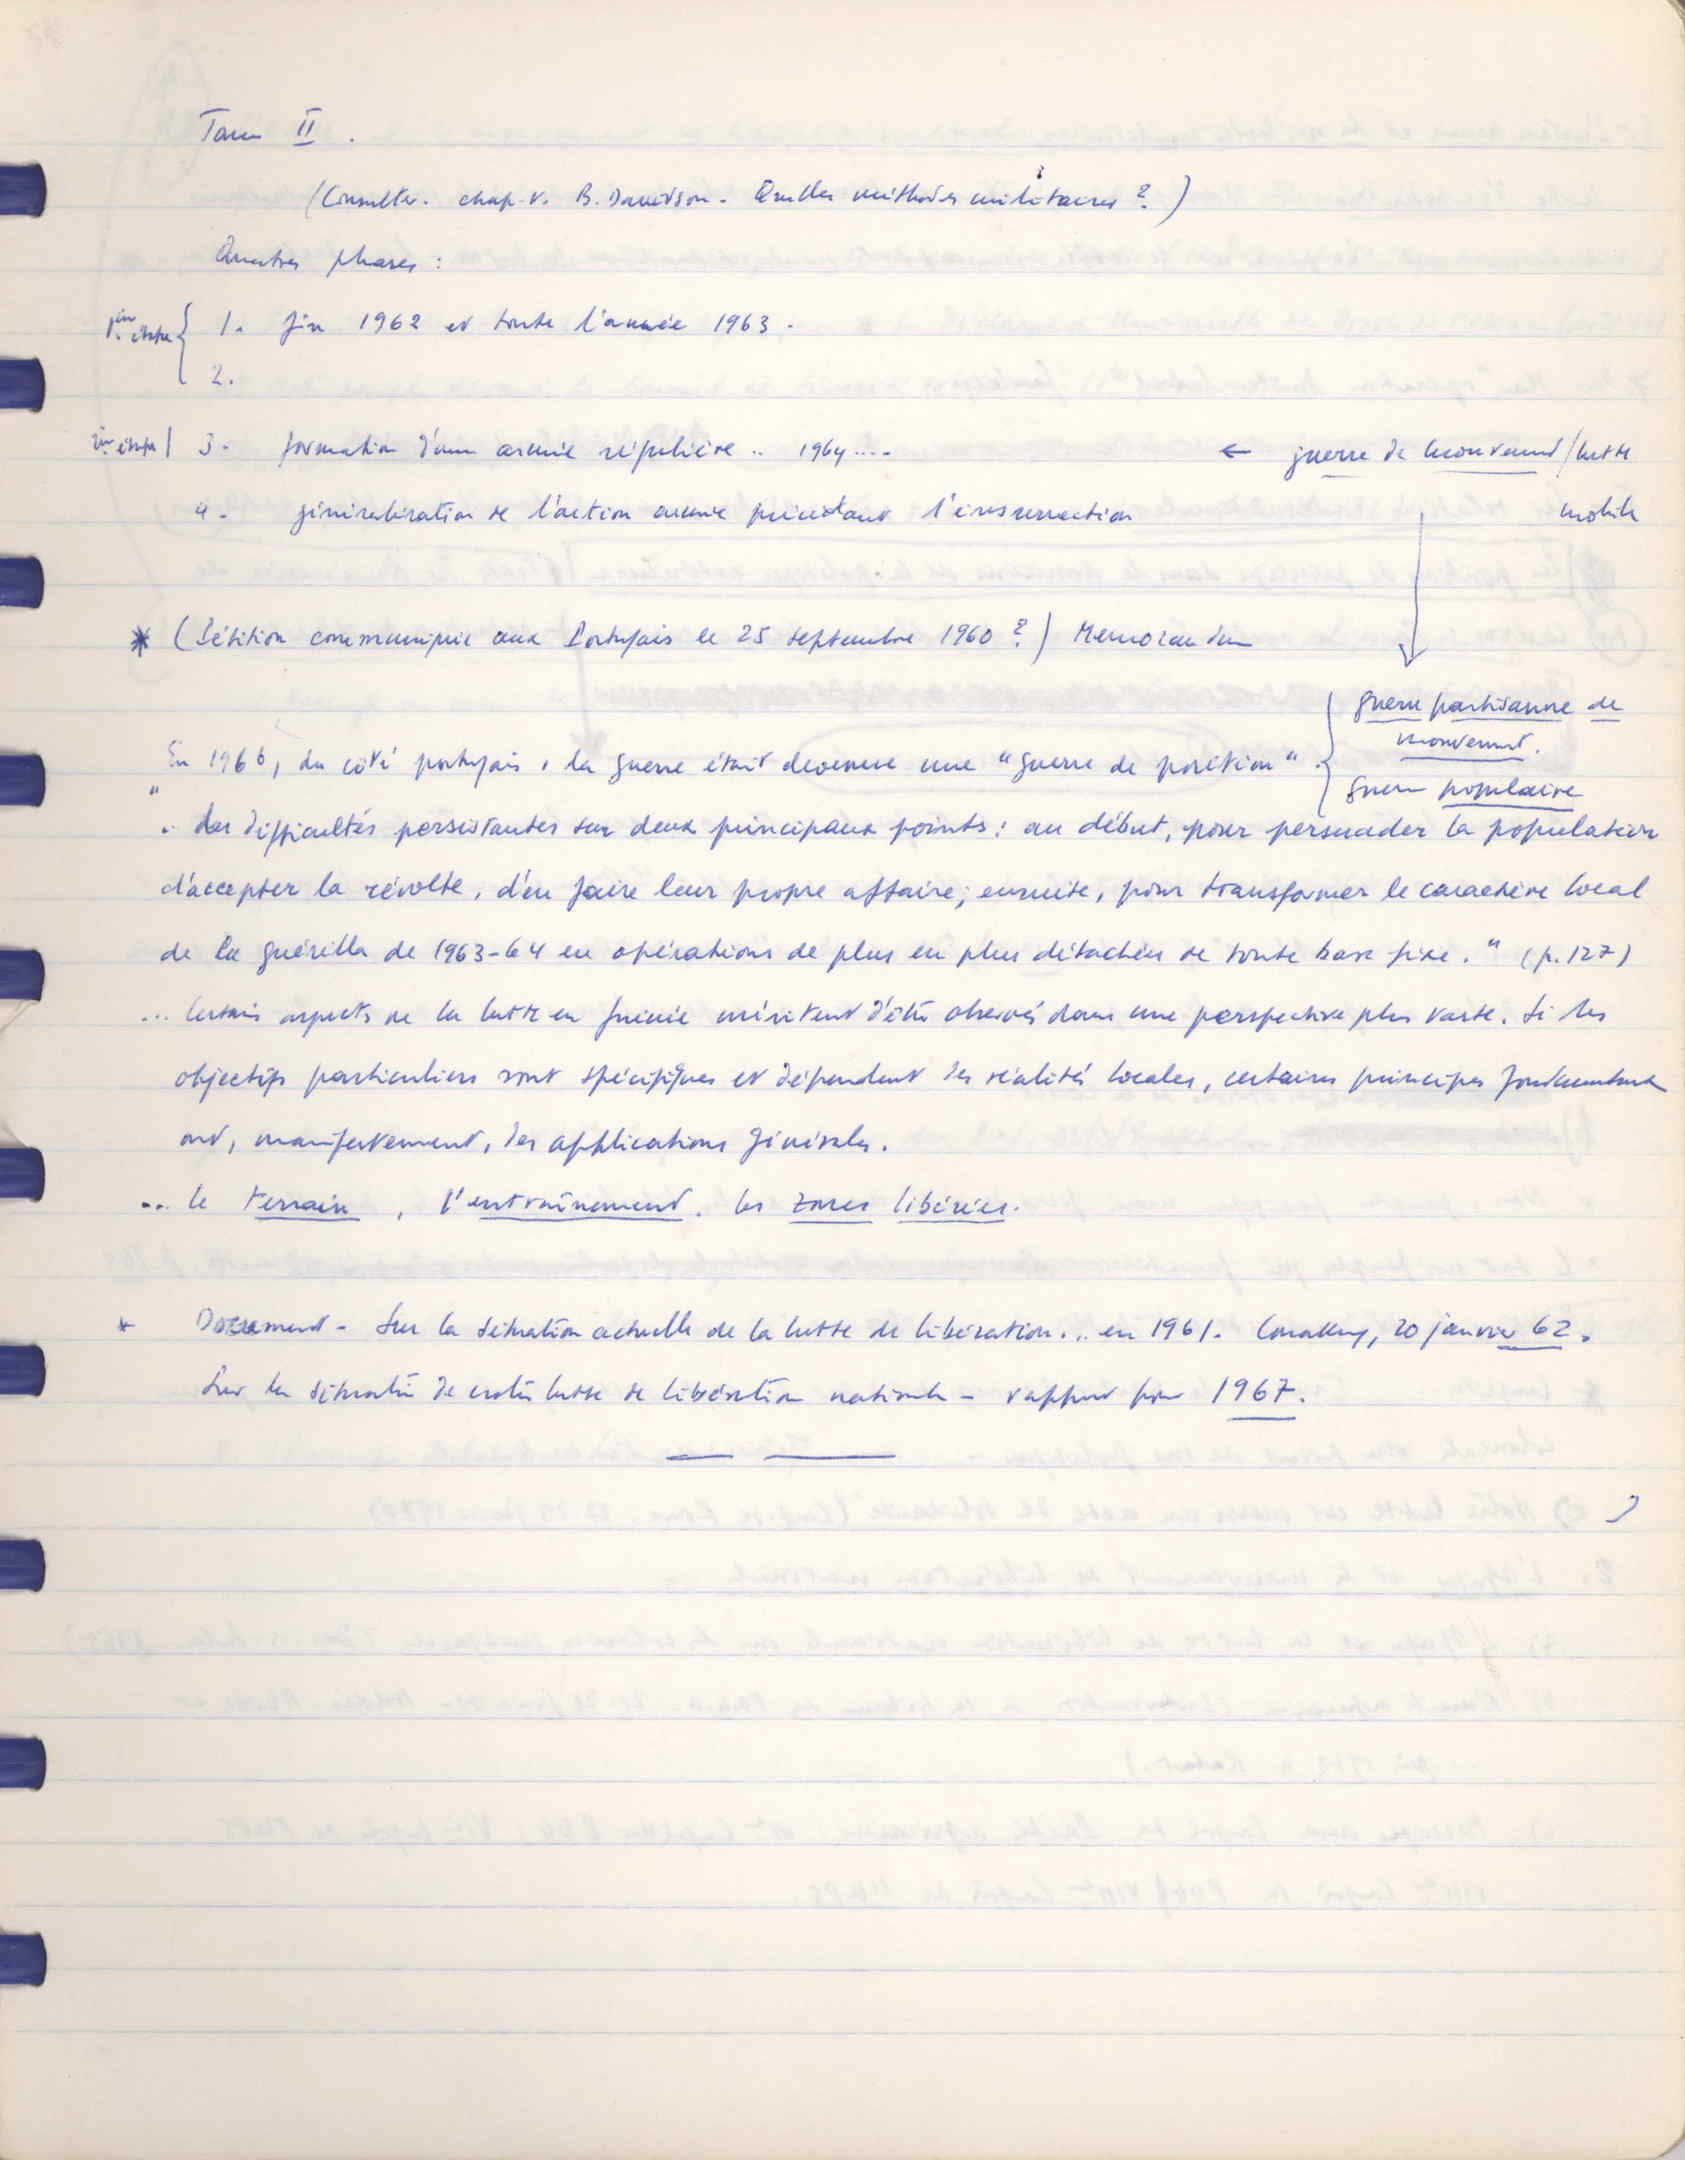 Tome II.
(Consulter. chap. V. B. Davidson. Quelles méthodes militaires ?)
Quatres phases :
1ère étape { 1. fin 1962 et toute l'année 1963.
2.
2ème étape | 3. formation d'une armée régulière .. 1964.... ← guerre de mouvement / lutte
4. généralisation de l'action armée précédant l'insurrection mobile
* (Pétition communiquée aux Portugais le 25 septembre 1960 ?) Memorandum
guerre partisanne de
mouvement.
"En 1966, du côté portugais, la guerre était devenue une "guerre de position".
guerre populaire
" . des difficultés persistantes sur deux principaux points : au début, pour persuader la population
d'accepter la révolte, d'en faire leur propre affaire ; ensuite, pour transformer le caractère local
de la guérilla de 1963-64 en opérations de plus en plus détachées de toute base fixe." (p. 127)
... Certains aspects de la lutte en Guinée méritent d'être observés dans une perspective plus vaste. Si les
objectifs particuliers sont spécifiques et dépendent des réalités locales, certains principes fondamentaux
ont, manifestement, des applications générales.
... le terrain, l'entraînement, les zones libérées.
* Document - Sur la situation actuelle de la lutte de libération... en 1961. Conakry, 20 janvier 62.
Sur la situation de notre lutte de libération nationale - rapport pour 1967.